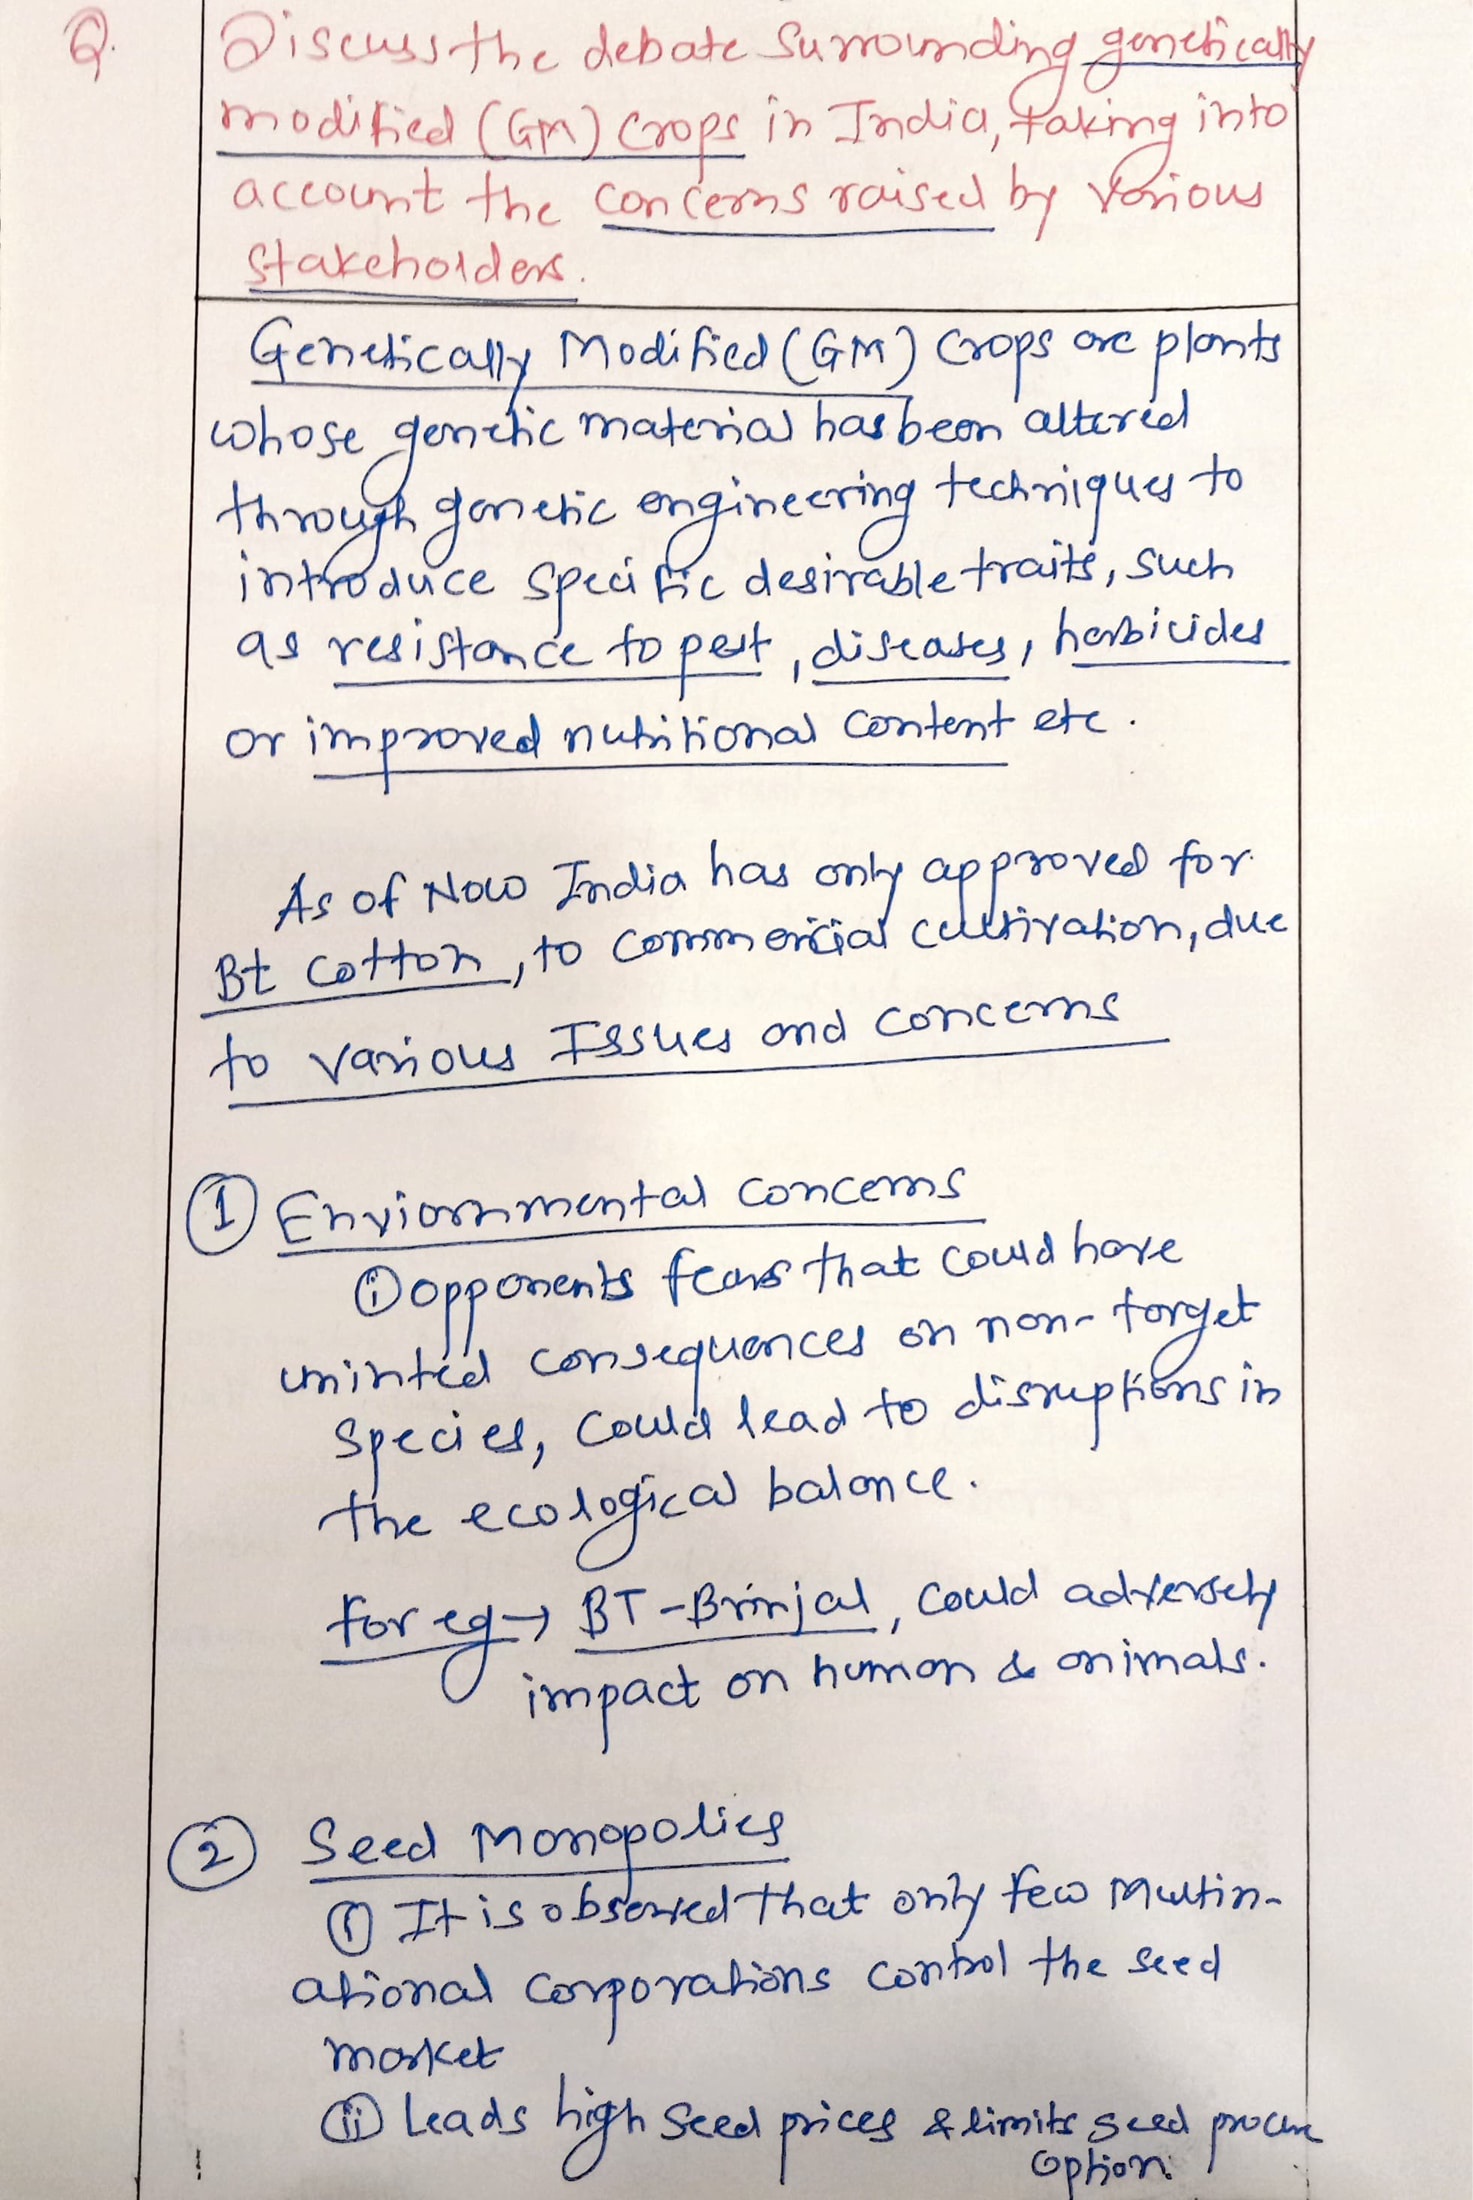 Q. Discuss the debate surrounding genetically
modified (GM) crops in India, taking into
account the concerns raised by various
stakeholders.
Genetically Modified (GM) Crops are plants
whose genetic material has been altered
through genetic engineering techniques to
introduce specific desirable traits, such
as resistance to pest, diseases, herbicides
or improved nutritional content etc.
As of Now India has only approved for
Bt cotton, to commercial cultivation, due
to various Issues and concerns
1 Enviornmental concerns
i opponents fears that could have
uninted consequences on non-target
species, could lead to disruptions in
the ecological balance.
for eg → BT-Brinjal, could adversely
impact on human & animals.
2 Seed Monopolies
i It is observed that only few Multin-
ational corporations control the seed
market
ii Leads high seed prices & limits seed procure
option.